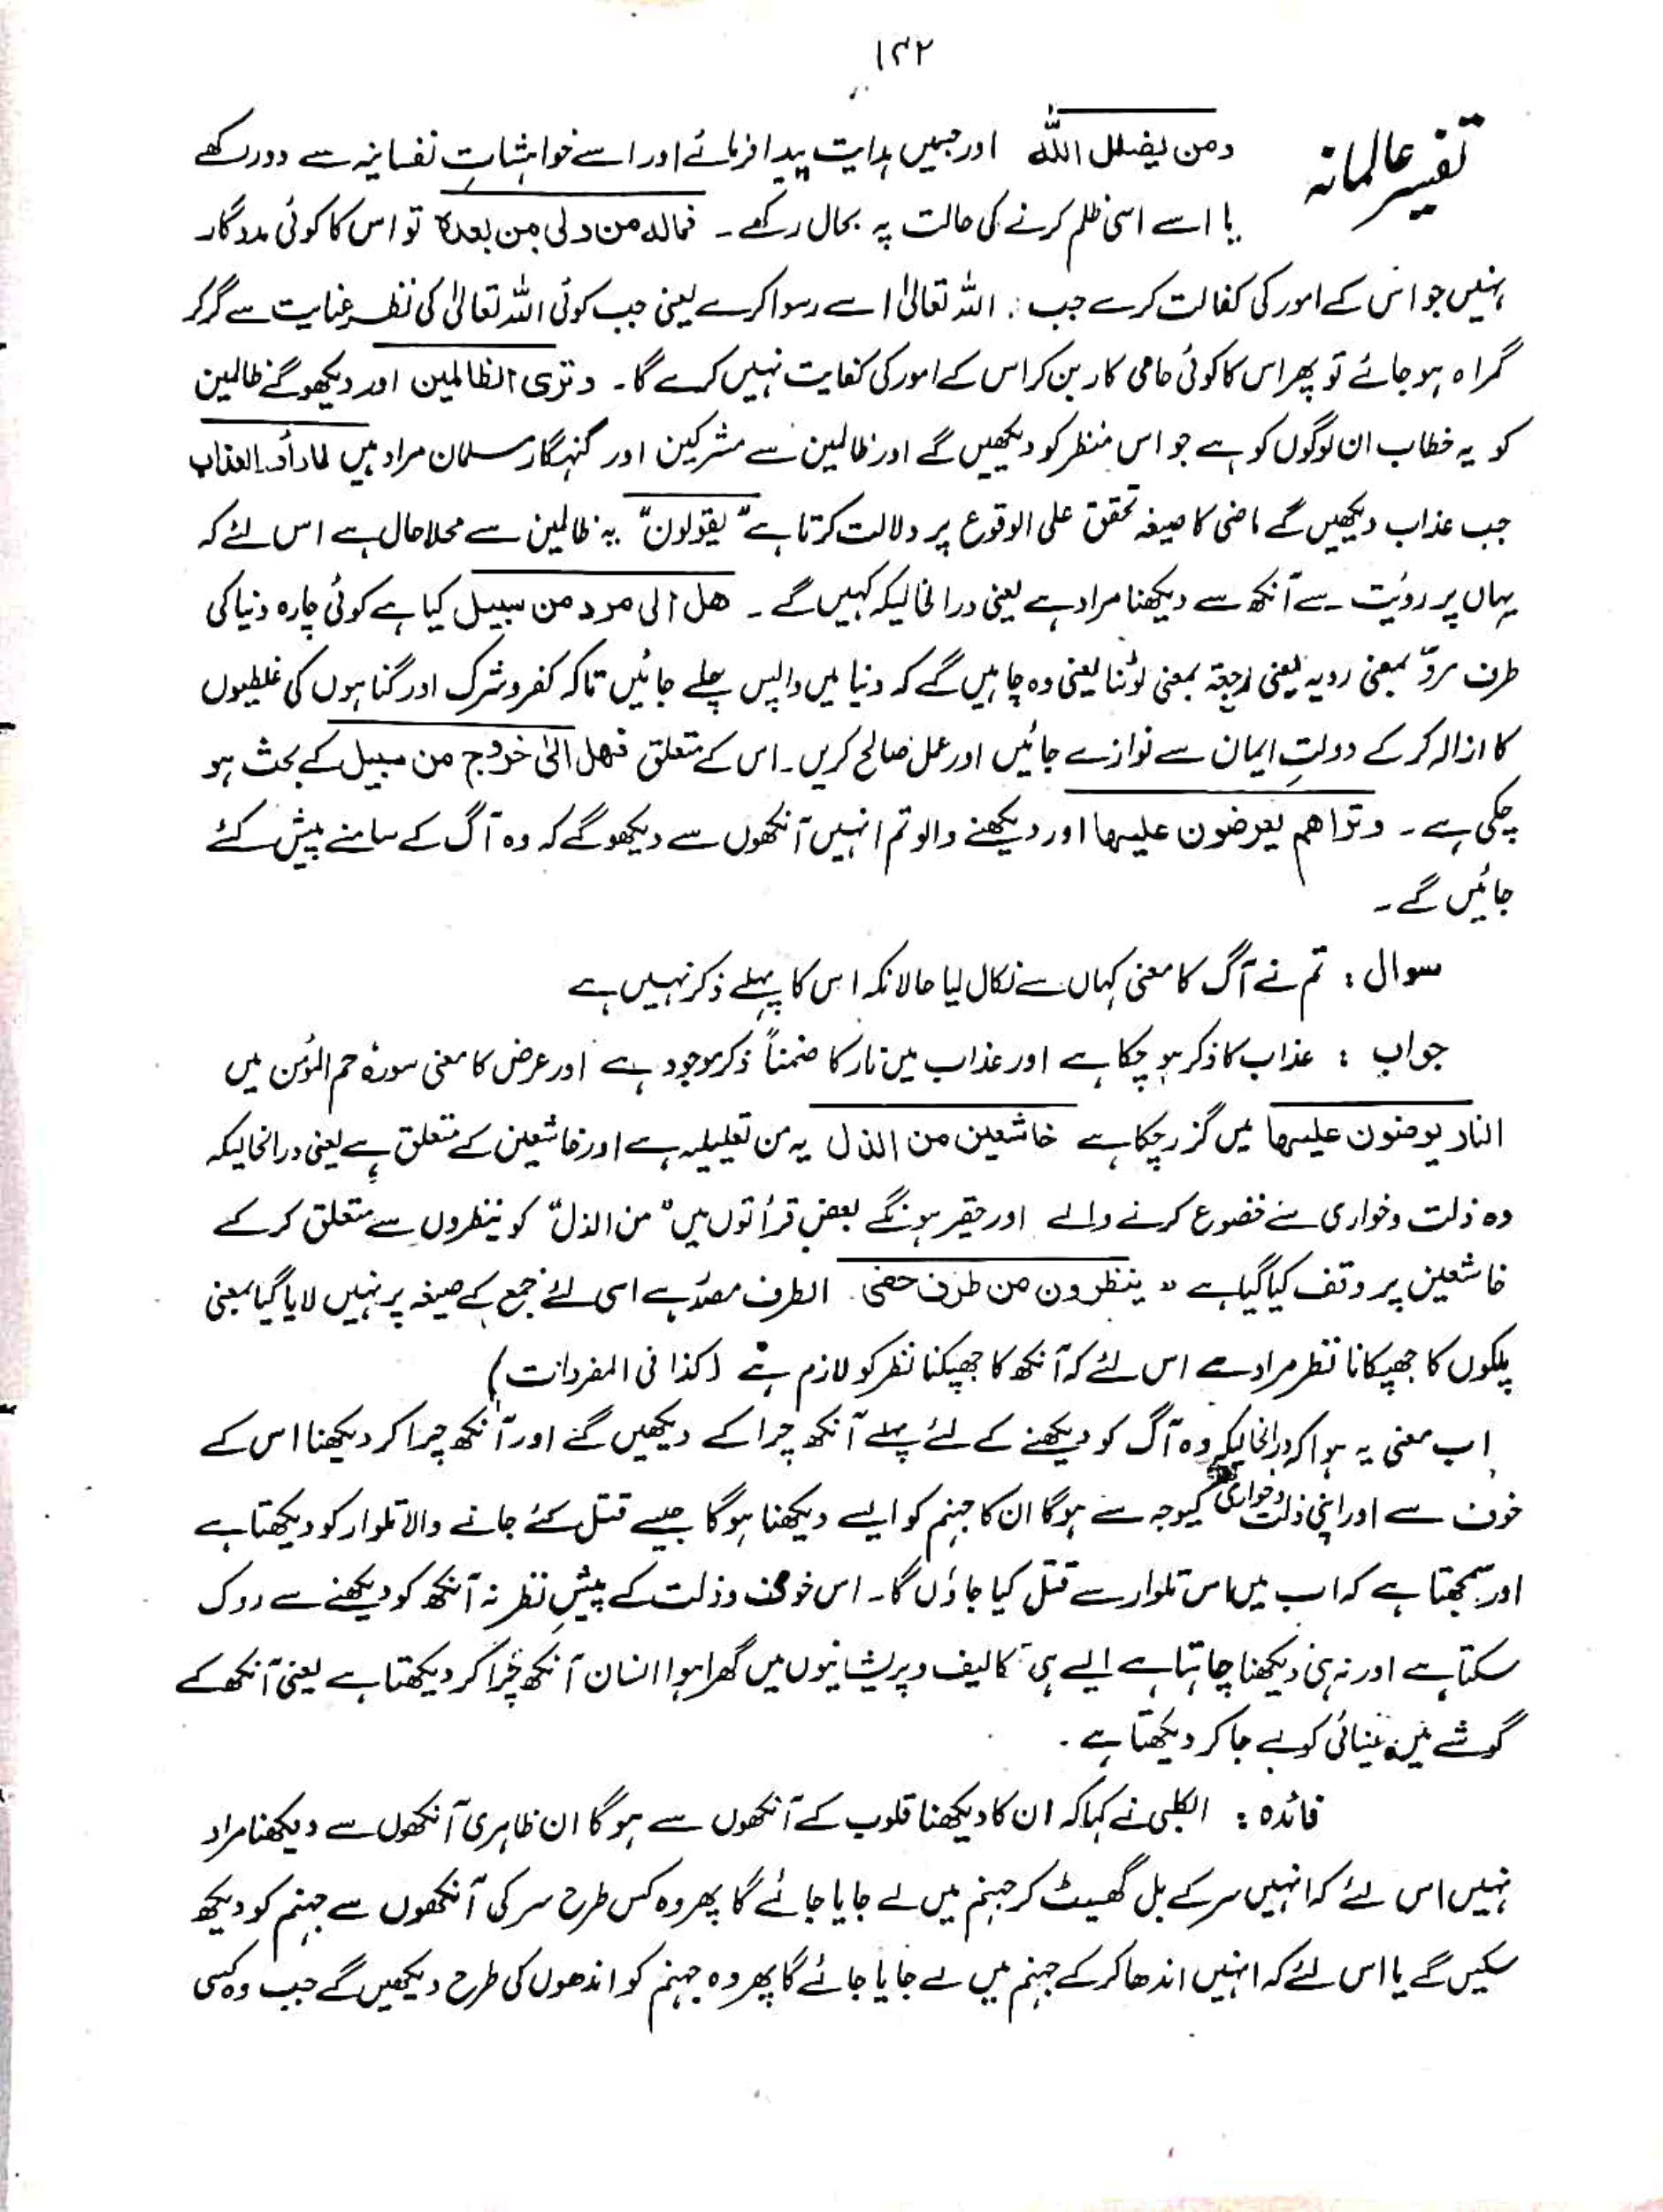 ۱۴۲
تفسیر عالمانہ
ومن یضلل اللہ اور جسمیں ہدایت پیدا فرمائے اور اسے خواہشاتِ نفسانیہ سے دور رکھے
یا اسے اسی ظلم کرنے کی حالت پہ بحال رکھے۔ فمالہ من ولی من بعدہ تو اس کا کوئی مددگار
نہیں جو اس کے امور کی کفالت کرے جب: اللہ تعالیٰ اسے رسوا کرے یعنی جب کوئی اللہ تعالیٰ کی نظر عنایت سے گر کر
گمراہ ہو جائے تو پھر اس کا کوئی حامی کار بن کر اس کے امور کی کفایت نہیں کرے گا۔ وتری الظالمین اور دیکھو گے ظالمین
کو یہ خطاب ان لوگوں کو ہے جو اس منظر کو دیکھیں گے اور ظالمین سے مشرکین اور گنہگار مسلمان مراد ہیں لما رأو العذاب
جب عذاب دیکھیں گے ماضی کا صیغہ تحقق علی الوقوع پر دلالت کرتا ہے "یقولون" یہ ظالمین سے محلا حال ہے اس لئے کہ
یہاں پر رویٔت سے آنکھ سے دیکھنا مراد ہے یعنی درانحالیکہ کہیں گے۔ ھل الی مرد من سبیل کیا ہے کوئی چارہ دنیا کی
طرف مردّ بمعنی رویہ یعنی رجعۃ بمعنی لوٹنا یعنی وہ چاہیں گے کہ دنیا میں واپس چلے جائیں تاکہ کفر و شرک اور گناہوں کی غلطیوں
کا ازالہ کر کے دولتِ ایمان سے نوازے جائیں اور عمل صالح کریں۔ اس کے متعلق فھل الیٰ خروج من سبیل کے بحث ہو
چکی ہے۔ وتراھم یعرضون علیھا اور دیکھنے والو تم انہیں آنکھوں سے دیکھو گے کہ وہ آگ کے سامنے پیش کئے
جائیں گے۔
سوال: تم نے آگ کا معنی کہاں سے نکال لیا حالانکہ اس کا پہلے ذکر نہیں ہے
جواب: عذاب کا ذکر ہو چکا ہے اور عذاب میں نار کا ضمناً ذکر موجود ہے اور عرض کا معنی سورۂ حم المؤمن میں
النار یوضون علیھا میں گزر چکا ہے خاشعین من الذل یہ من تعلیلیہ ہے اور خاشعین کے متعلق ہے یعنی درانحالیکہ
وہ ذلت و خواری سے خضوع کرنے والے اور حقیر ہونگے بعض قرأتوں میں "من الذل" کو ینظرون سے متعلق کر کے
خاشعین پر وقف کیا گیا ہے " ینظرون من طرف خفی الطرف مصدر ہے اسی لئے جمع کے صیغہ پر نہیں لایا گیا بمعنی
پلکوں کا جھپکانا نظر مراد ہے اس لئے کہ آنکھ کا جھپکنا نظر کو لازم ہے (کذا فی المفردات)
اب معنی یہ ہوا کہ درانحالیکہ وہ آگ کو دیکھنے کے لئے پہلے آنکھ چرا کے دیکھیں گے اور آنکھ چرا کر دیکھنا اس کے
خوف سے اور اپنی ذلت و خواری کیوجہ سے ہوگا ان کا جہنم کو ایسے دیکھنا ہوگا جیسے قتل کئے جانے والا تلوار کو دیکھتا ہے
اور سمجھتا ہے کہ اب میں اس تلوار سے قتل کیا جاؤں گا۔ اس خوف و ذلت کے پیشِ نظر نہ آنکھ کو دیکھنے سے روک
سکتا ہے اور نہ ہی دیکھنا چاہتا ہے ایسے ہی تکالیف و پریشانیوں میں گھرا ہوا انسان آنکھ چُرا کر دیکھتا ہے یعنی آنکھ کے
گوشے میں بینائی کو لے جا کر دیکھتا ہے۔
فائدہ: الکلبی نے کہا کہ ان کا دیکھنا قلوب کے آنکھوں سے ہوگا ان ظاہری آنکھوں سے دیکھنا مراد
نہیں اس لئے کہ انہیں سر کے بل گھسیٹ کر جہنم میں لے جایا جائے گا پھر وہ کس طرح سر کی آنکھوں سے جہنم کو دیکھ
سکیں گے یا اس لئے کہ انہیں اندھا کر کے جہنم میں لے جایا جائے گا پھر وہ جہنم کو اندھوں کی طرح دیکھیں گے جب وہ کسی